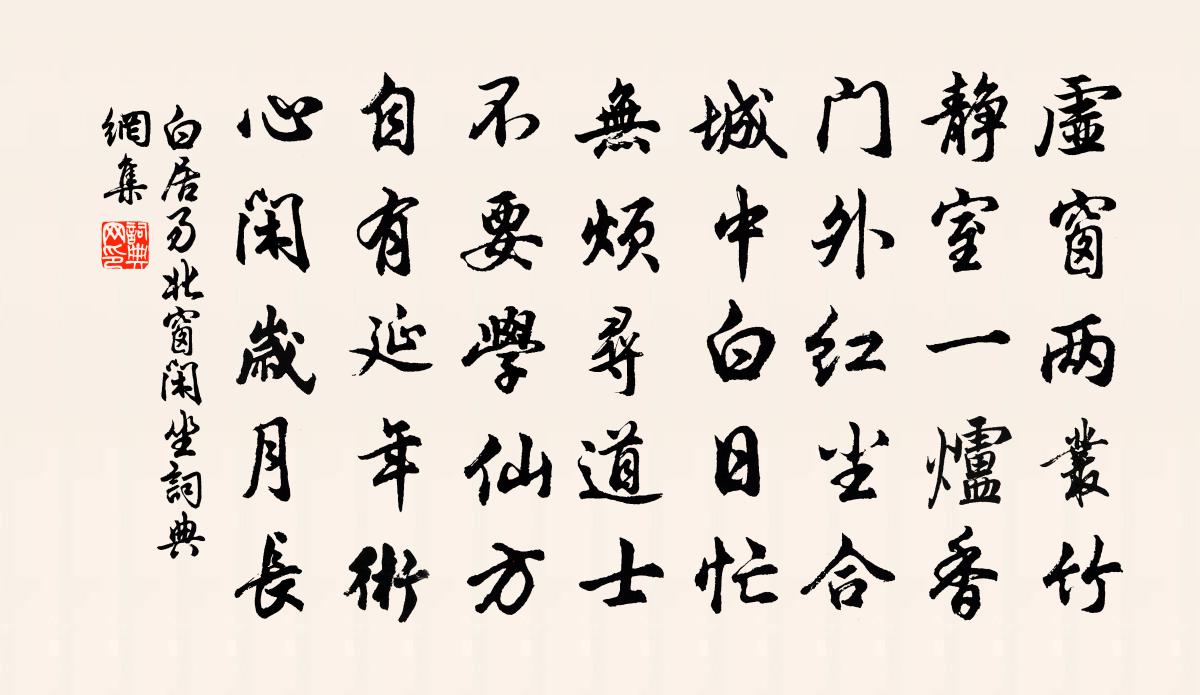 虛窗两叢竹
静室一爐香
门外红尘合
城中白日忙
無煩尋道士
不要學仙方
自有延年術
心閑歲月長
白居易北窗閑坐詞典
網集
詞典
网印